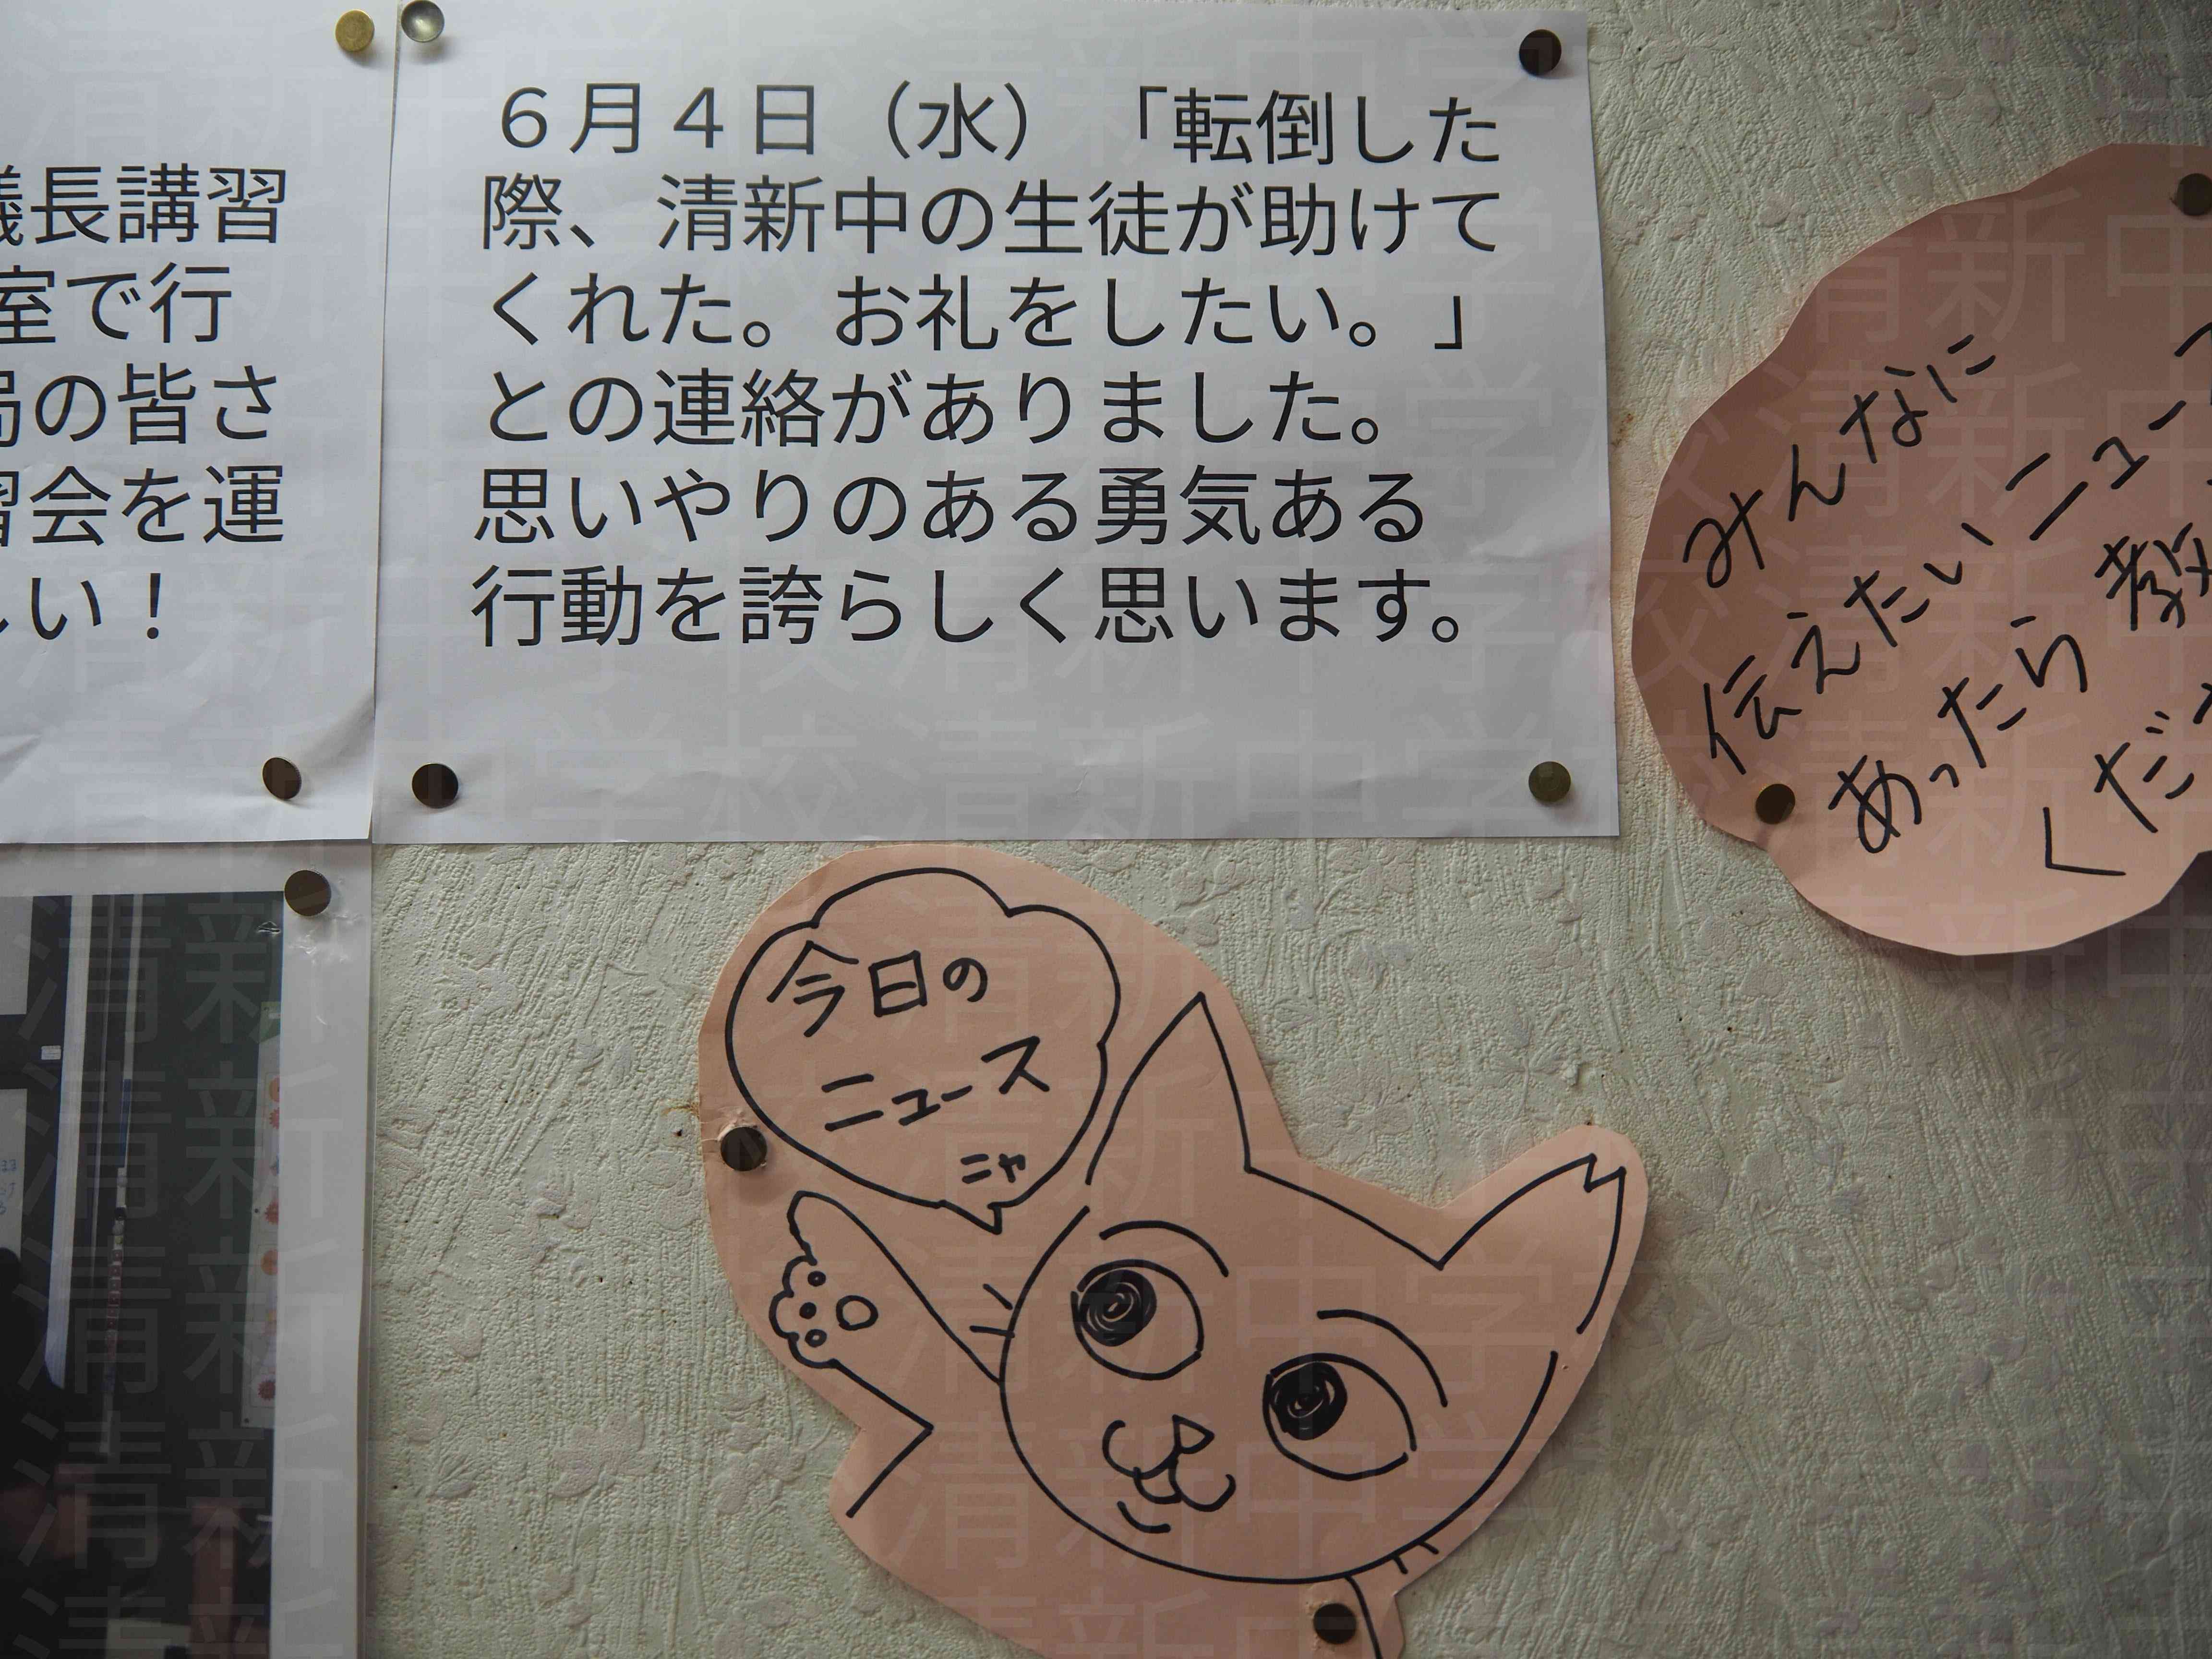 議長講習
室で行
局の皆さ
習会を運
しい！
６月４日（水）「転倒した
際、清新中の生徒が助けて
くれた。お礼をしたい。」
との連絡がありました。
思いやりのある勇気ある
行動を誇らしく思います。
みんなに
伝えたいニュー
あったら教
くださ
今日の
ニュース
ニャ
清新中学校